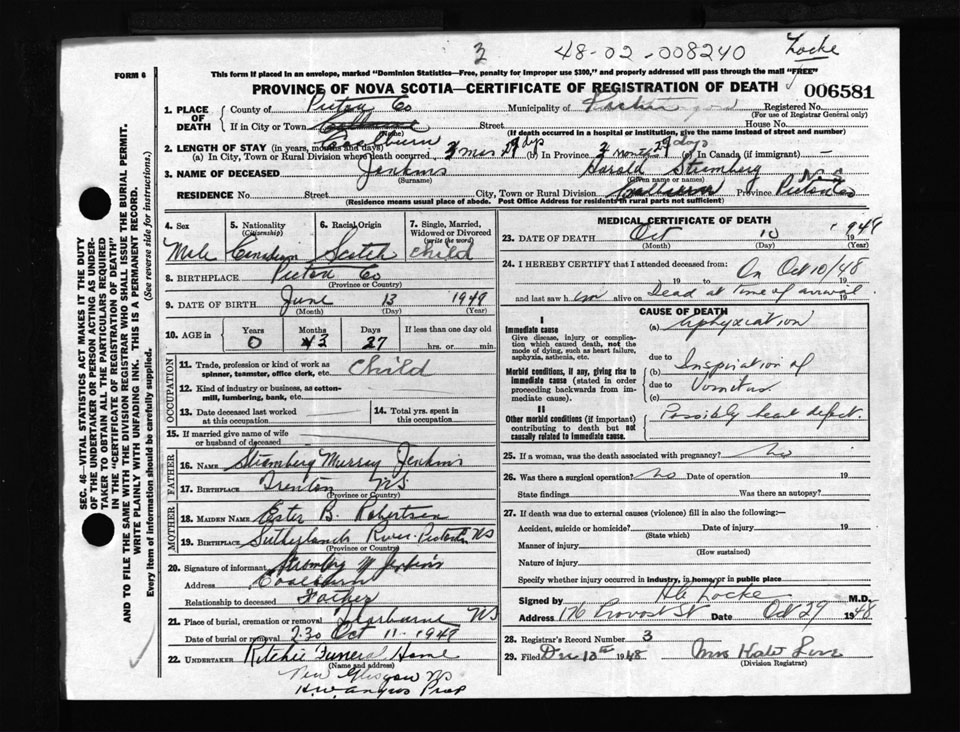 3 48-02-008240 Locke
FORM 6
This form if placed in an envelope, marked "Dominion Statistics—Free, penalty for improper use $300," and properly addressed will pass through the mail "FREE"
PROVINCE OF NOVA SCOTIA—CERTIFICATE OF REGISTRATION OF DEATH 006581
SEC. 46—VITAL STATISTICS ACT MAKES IT THE DUTY
OF THE UNDERTAKER OR PERSON ACTING AS UNDER-
TAKER TO OBTAIN ALL THE PARTICULARS REQUIRED
IN THE "CERTIFICATE OF REGISTRATION OF DEATH"
AND TO FILE THE SAME WITH THE DIVISION REGISTRAR WHO SHALL ISSUE THE BURIAL PERMIT.
WRITE PLAINLY WITH UNFADING INK. THIS IS A PERMANENT RECORD.
Every item of information should be carefully supplied. (See reverse side for instructions.)
1. PLACE OF DEATH
County of Pictou Co Municipality of Registered No.
(For use of Registrar General only)
If in City or Town Street House No.
(Name) (If death occurred in a hospital or institution, give the name instead of street and number)
Coalburn
2. LENGTH OF STAY (in years, months and days)
(a) In City, Town or Rural Division where death occurred 3 mos 27 dys (b) In Province 3 months 27 days (c) In Canada (if immigrant) —
3. NAME OF DECEASED Jenkins Harold Stromberg
(Surname) (Given name or names)
RESIDENCE No. Street City, Town or Rural Division Province Pictou Co NS
(Residence means usual place of abode. Post Office Address for residents in rural parts not sufficient)
4. Sex
Male
5. Nationality
(Citizenship)
Canadian
6. Racial Origin
Scotch
7. Single, Married,
Widowed or Divorced
(write the word)
Child
8. BIRTHPLACE Pictou Co
(Province or Country)
9. DATE OF BIRTH June 13 1948
(Month) (Day) (Year)
10. AGE in Years Months Days If less than one day old
0 3 27 hrs. or min.
OCCUPATION
11. Trade, profession or kind of work as
spinner, teamster, office clerk, etc. Child
12. Kind of industry or business, as cotton-
mill, lumbering, bank, etc.
13. Date deceased last worked
at this occupation
14. Total yrs. spent in
this occupation
15. If married give name of wife
or husband of deceased
FATHER
16. NAME Stromberg Murray Jenkins
17. BIRTHPLACE Trenton NS
(Province or Country)
MOTHER
18. MAIDEN NAME Ester B. Robertson
19. BIRTHPLACE Sutherlands River Pictou Co NS
(Province or Country)
20. Signature of informant Stromberg M Jenkins
Address Coalburn
Relationship to deceased Father
21. Place of burial, cremation or removal NS
Date of burial or removal 2.30 Oct 11 - 1948
22. UNDERTAKER Ritchie Funeral Home
(Name and address)
New Glasgow NS
H.W. Angus Prop
MEDICAL CERTIFICATE OF DEATH
23. DATE OF DEATH Oct 10 1948
(Month) (Day) (Year)
24. I HEREBY CERTIFY that I attended deceased from: On Oct 10/48
19 to 19
and last saw him alive on Dead at time of arrival 19
CAUSE OF DEATH
I
Immediate cause
Give disease, injury or complica-
tion which caused death, not the
mode of dying, such as heart failure,
asphyxia, asthenia, etc.
(a) Asphyxiation
due to
Morbid conditions, if any, giving rise to
immediate cause (stated in order
proceeding backwards from im-
mediate cause).
(b) Inspiration of
due to Vomitus.
(c)
II
Other morbid conditions (if important)
contributing to death but not
causally related to immediate cause.
Possibly heart defect.
25. If a woman, was the death associated with pregnancy? No
26. Was there a surgical operation? No Date of operation 19
State findings Was there an autopsy?
27. If death was due to external causes (violence) fill in also the following:—
Accident, suicide or homicide? Date of injury 19
(State which)
Manner of injury
(How sustained)
Nature of injury
Specify whether injury occurred in industry, in home, or in public place
Signed by Locke M.D.
Address 176 Provost St Date Oct 29 1948
28. Registrar's Record Number 3
29. Filed Dec 13th 1948 Mrs
(Division Registrar)